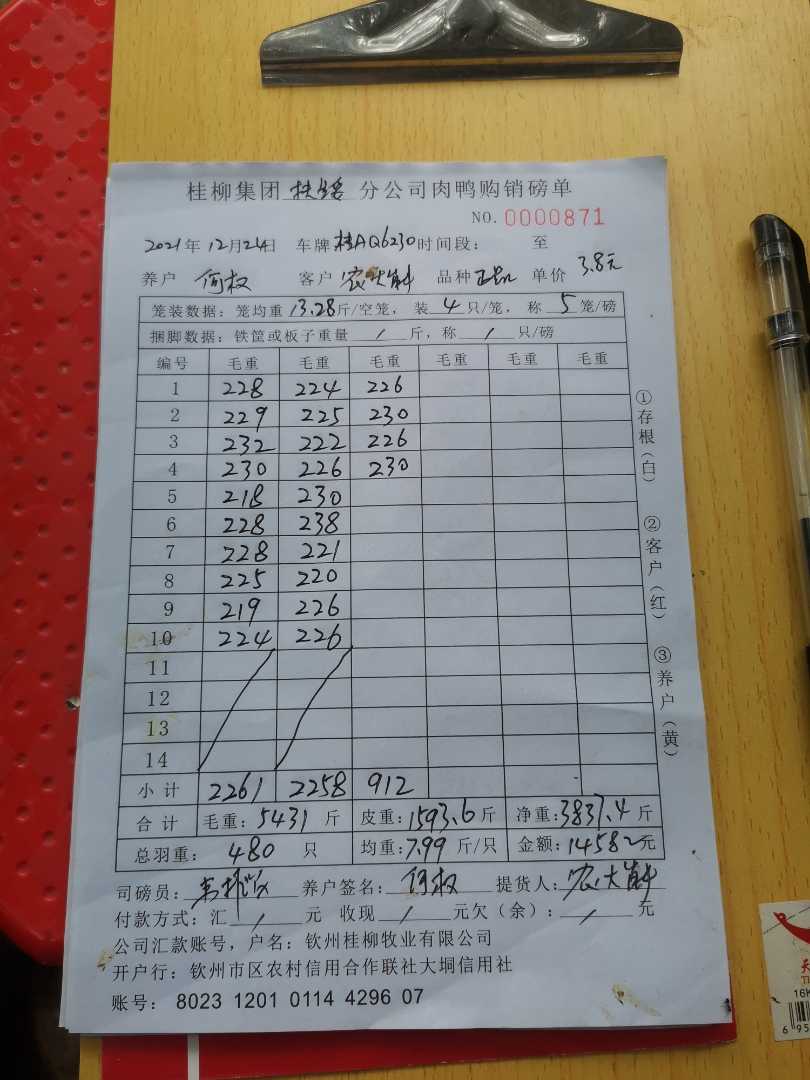 桂柳集团扶绥分公司肉鸭购销磅单
NO. 0000871
2021年12月24日 车牌桂AQ6230时间段： 至
养户 何权 客户 农大 品种 单价 3.8元
笼装数据：笼均重13.28斤/空笼，装4只/笼，称5笼/磅
捆脚数据：铁筐或板子重量/斤，称/只/磅
编号 毛重 毛重 毛重 毛重 毛重
1 228 224 226
2 229 225 230
3 232 222 226
4 230 226 230
5 218 230
6 228 238
7 228 221
8 225 220
9 219 226
10 224 226
11
12
13
14
小计 2261 2258 912
合计 毛重：5431斤 皮重：1593.6斤 净重：3837.4斤
总羽重：480只 均重：7.99斤/只 金额：14582元
司磅员： 养户签名：何权 提货人：农大
付款方式：汇/元 收现/元欠（余）：/元
公司汇款账号，户名：钦州桂柳牧业有限公司
开户行：钦州市区农村信用合作联社大垌信用社
账号：8023 1201 0114 4296 07
①存根（白）
②客户（红）
③养户（黄）
16K
6 95